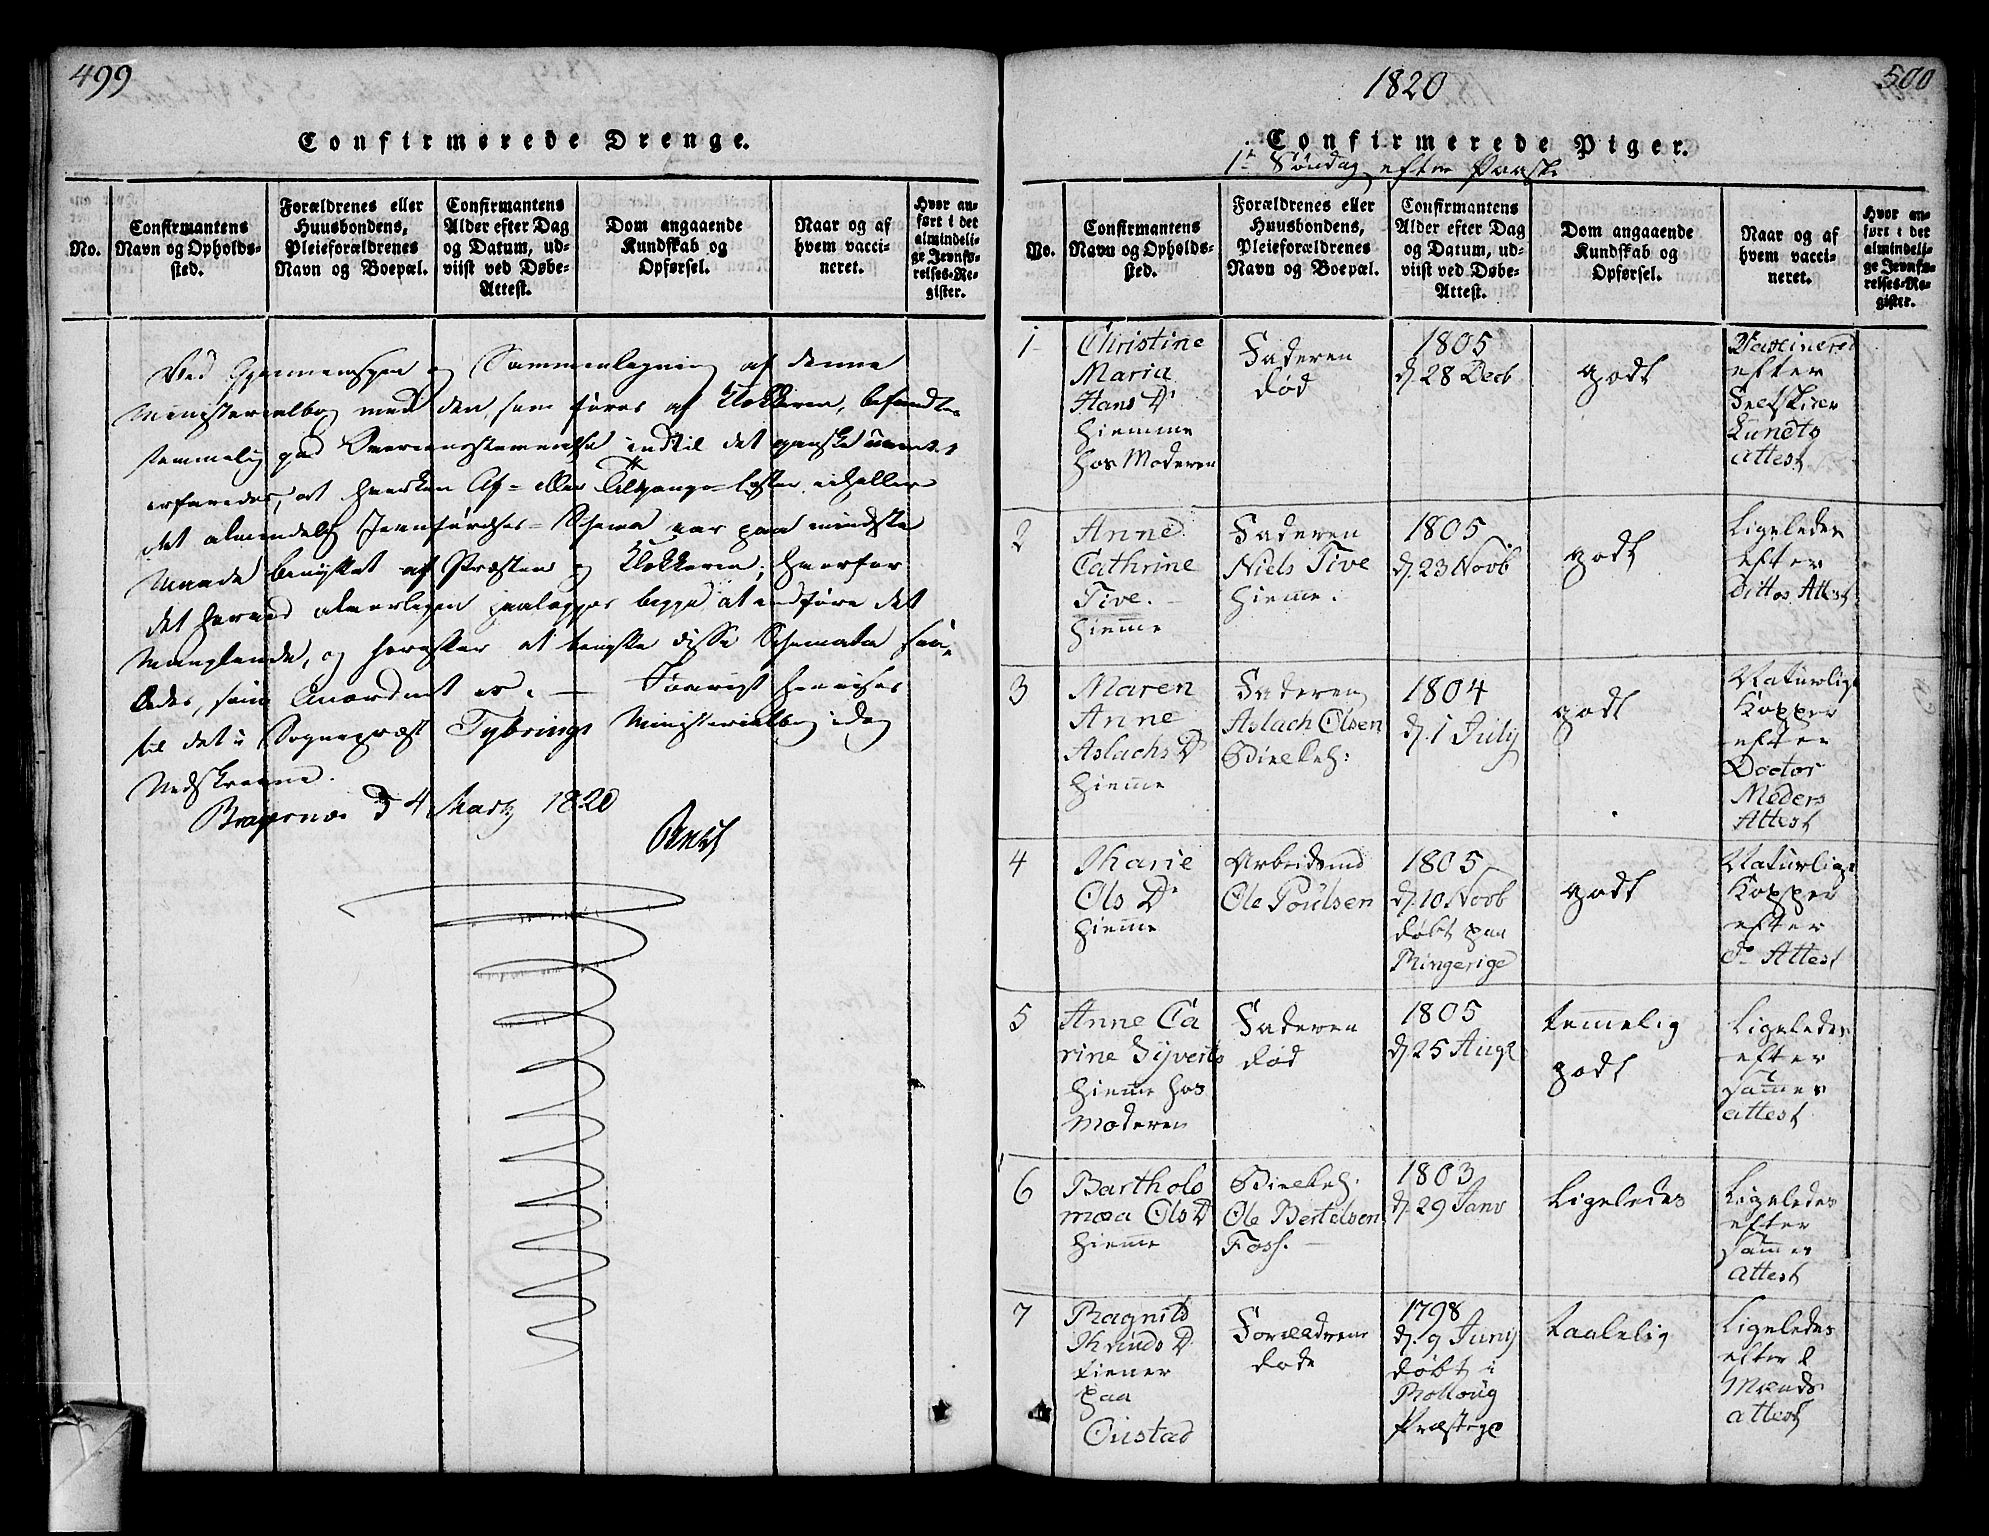 499
Confirmerede Drenge.
No.
Confirmantens
Navn og Opholds-
sted.
Forældrenes eller
Huusbondens,
Pleieforældrenes
Navn og Boepæl.
Confirmantens
Alder efter Dag
og Datum, ud-
viist ved Døbe-
Attest.
Dom angaaende
Kundskab og
Opførsel.
Naar og af
hvem vacci-
neret.
Hvor an-
ført i det
almindeli-
ge Jevnfø-
relses-Re-
gister.
Ved Gjennemsyn og Sammenlegning af denne
Ministerialbog med den, som føres af Klokkeren, befandtes
temmelig god Overeensstemmelse indtil det ganske
erfaredes, at hverken Af- eller Tilgangs-Lister eheller
det almindelige Jevnførelses-Schema var paa mindste
Maade benyttet af Præsten og Klokkeren; hvorfor
det herved alvorligen paalægges begge at indføre det
Manglende, og herefter at benytte disse Schemata saa-
ledes, som Anordnet er. — Hvorvist henvises
til det i Sognepræst Tybrings Ministerialbog idag
Nedskrevne.
Bragernæs d 4 Martz 1820
1820
500
Confirmerede Piger.
1te Søndag efter Paaske
No.
Confirmantens
Navn og Opholds-
sted.
Forældrenes eller
Huusbondens,
Pleieforældrenes
Navn og Boepæl.
Confirmantens
Alder efter Dag
og Datum, ud-
viist ved Døbe-
Attest.
Dom angaaende
Kundskab og
Opførsel.
Naar og af
hvem vacci-
neret.
Hvor an-
ført i det
almindeli-
ge Jevnfø-
relses-Re-
gister.
1
Christine
Maria
Hans D
hiemme
hos Moderen
Faderen
død
1805
d. 28 Decb
godt
Vaccineret
efter
Lundts
attest
2
Anne
Cathrine
Tive.
hiemme
Faderen
Niels Tive
hiemme.
1805
d. 23 Novb
godt
Ligeledes
efter
dittos Attest
3
Maren
Anne
Aslachs D
hiemme
Faderen
Aslach Olsen
Øvielkeh:
1804
d. 1 July
godt
Naturlige
Kopper
efter
Doctor
Meders
Attest
4
Marie
Ols D
hiemme
Arbeidsmd
Ole Poulsen
1805
d. 10 Novb
døbt paa
Ringerige
godt
Naturlige
Kopper
efter
do Attest
5
Anne Ca
rine Syverts
hiemme hos
Moderen
Faderen
død
1805
d. 25 Augt
temmelig
godt
Ligeledes
efter
sammes
attest
6
Bartholo
mæa Ols D
hiemme
Ole Bertelsen
Foss.
1803
d. 29 Janv
Ligeledes
Ligeledes
efter
sammes
attest
7
Ragnild
Knuds D
tiener
paa
Oustad
Forældrene
døde
1798
d. 9 Juny
døbt i
Rolloug
Præsteg
taalelig
Ligeledes
efter
attest